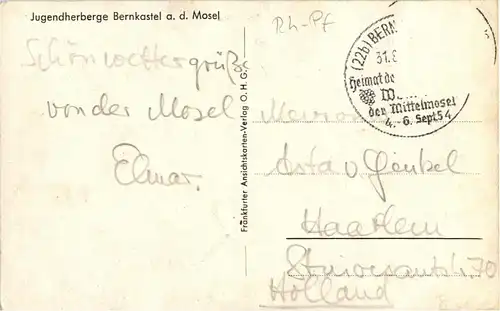 Jugendherberge Bernkastel a. d. Mosel
Rh-Pf
(22b) BERN
31.8
Heimat de
W
der Mittelmosel
4.-6. Sept 54
Schönwettergrüße
von der Mosel
Elmar.
Frankfurter Ansichtskarten-Verlag O.H.G.
Anta v Ginkel
Haarlem
70
Holland